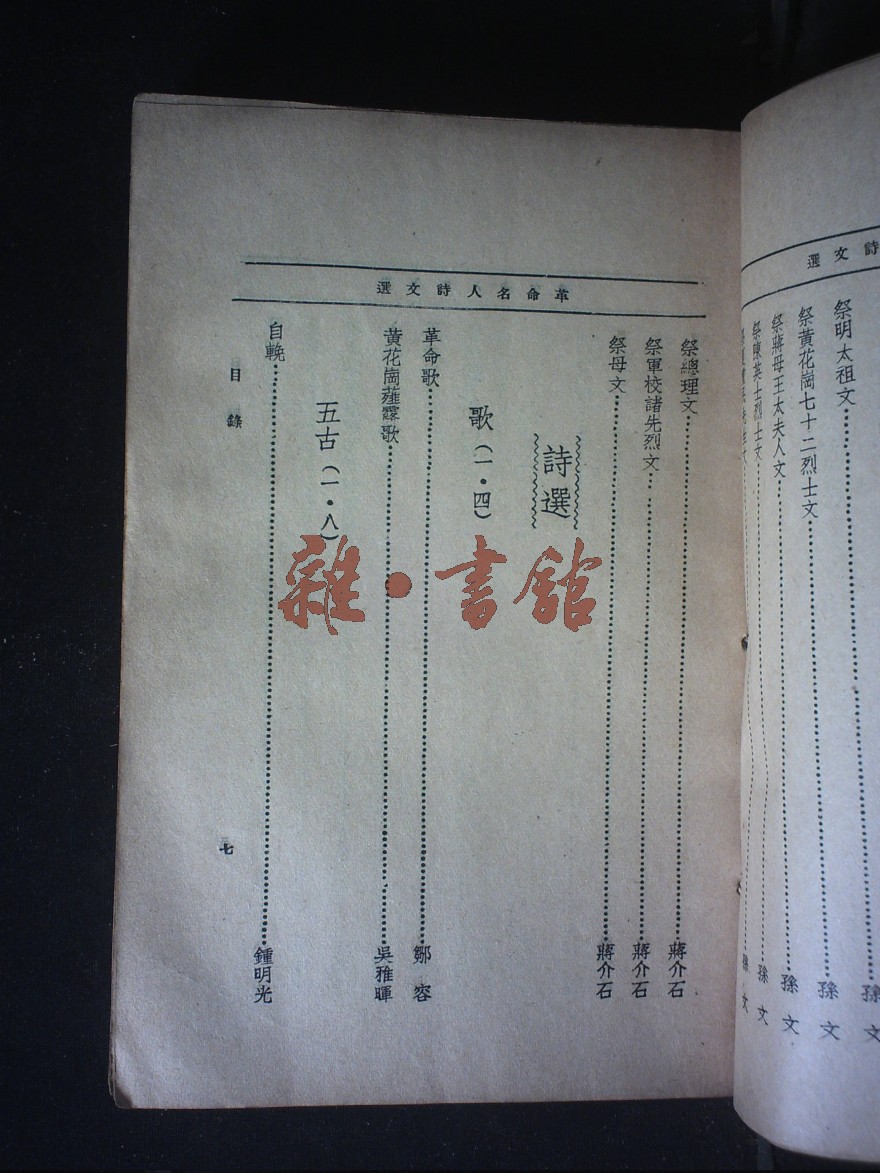 詩文選
祭明太祖文 孫文
祭黃花崗七十二烈士文 孫文
祭蔣母王太夫人文 孫文
祭陳英士烈士文 孫文
孫文
革命名人詩文選
祭總理文 蔣介石
祭軍校諸先烈文 蔣介石
祭母文 蔣介石
詩選
歌(一・四)
革命歌 鄒容
黃花崗薤露歌 吳雅暉
五古(一・八)
自輓 鍾明光
目錄
七
雜・書館